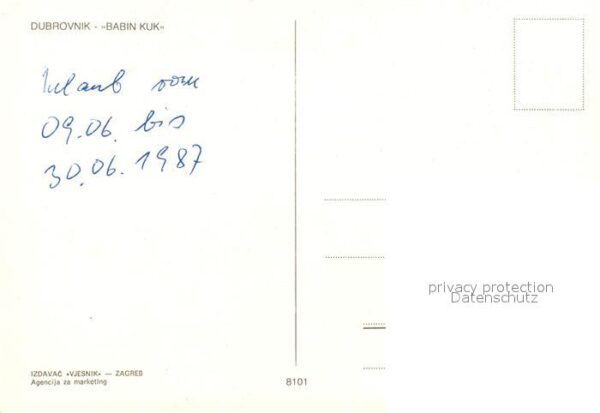 DUBROVNIK - »BABIN KUK«
Urlaub vom
09.06. bis
30.06.1987
privacy protection
Datenschutz
IZDAVAČ »VJESNIK« — ZAGREB
Agencija za marketing
8101